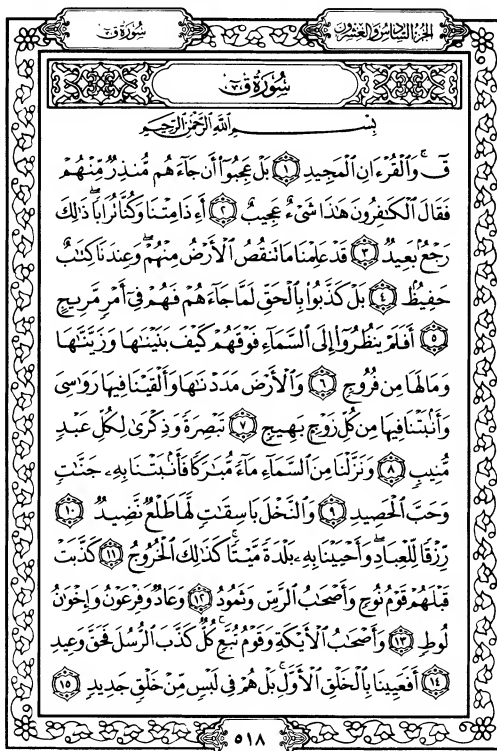 الجزء السادس والعشرون
سُورَةُ قٓ
سُورَةُ قٓ
بِسْمِ اللَّهِ الرَّحْمَٰنِ الرَّحِيمِ
قٓ ۚ وَالْقُرْءَانِ الْمَجِيدِ ١ بَلْ عَجِبُوٓا۟ أَن جَآءَهُم مُّنذِرٌ مِّنْهُمْ
فَقَالَ الْكَٰفِرُونَ هَٰذَا شَىْءٌ عَجِيبٌ ٢ أَءِذَا مِتْنَا وَكُنَّا تُرَابًا ۖ ذَٰلِكَ
رَجْعٌۢ بَعِيدٌ ٣ قَدْ عَلِمْنَا مَا تَنقُصُ الْأَرْضُ مِنْهُمْ ۖ وَعِندَنَا كِتَٰبٌ
حَفِيظٌۢ ٤ بَلْ كَذَّبُوا۟ بِالْحَقِّ لَمَّا جَآءَهُمْ فَهُمْ فِىٓ أَمْرٍ مَّرِيجٍ
٥ أَفَلَمْ يَنظُرُوٓا۟ إِلَى السَّمَآءِ فَوْقَهُمْ كَيْفَ بَنَيْنَٰهَا وَزَيَّنَّٰهَا
وَمَا لَهَا مِن فُرُوجٍ ٦ وَالْأَرْضَ مَدَدْنَٰهَا وَأَلْقَيْنَا فِيهَا رَوَٰسِىَ
وَأَنۢبَتْنَا فِيهَا مِن كُلِّ زَوْجٍۭ بَهِيجٍ ٧ تَبْصِرَةً وَذِكْرَىٰ لِكُلِّ عَبْدٍ
مُّنِيبٍ ٨ وَنَزَّلْنَا مِنَ السَّمَآءِ مَآءً مُّبَٰرَكًا فَأَنۢبَتْنَا بِهِۦ جَنَّٰتٍ
وَحَبَّ الْحَصِيدِ ٩ وَالنَّخْلَ بَاسِقَٰتٍ لَّهَا طَلْعٌ نَّضِيدٌ ١٠
رِّزْقًا لِّلْعِبَادِ ۖ وَأَحْيَيْنَا بِهِۦ بَلْدَةً مَّيْتًا ۚ كَذَٰلِكَ الْخُرُوجُ ١١ كَذَّبَتْ
قَبْلَهُمْ قَوْمُ نُوحٍ وَأَصْحَٰبُ الرَّسِّ وَثَمُودُ ١٢ وَعَادٌ وَفِرْعَوْنُ وَإِخْوَٰنُ
لُوطٍ ١٣ وَأَصْحَٰبُ الْأَيْكَةِ وَقَوْمُ تُبَّعٍ ۚ كُلٌّ كَذَّبَ الرُّسُلَ فَحَقَّ وَعِيدِ
١٤ أَفَعَيِينَا بِالْخَلْقِ الْأَوَّلِ ۚ بَلْ هُمْ فِى لَبْسٍ مِّنْ خَلْقٍ جَدِيدٍ ١٥
٥١٨